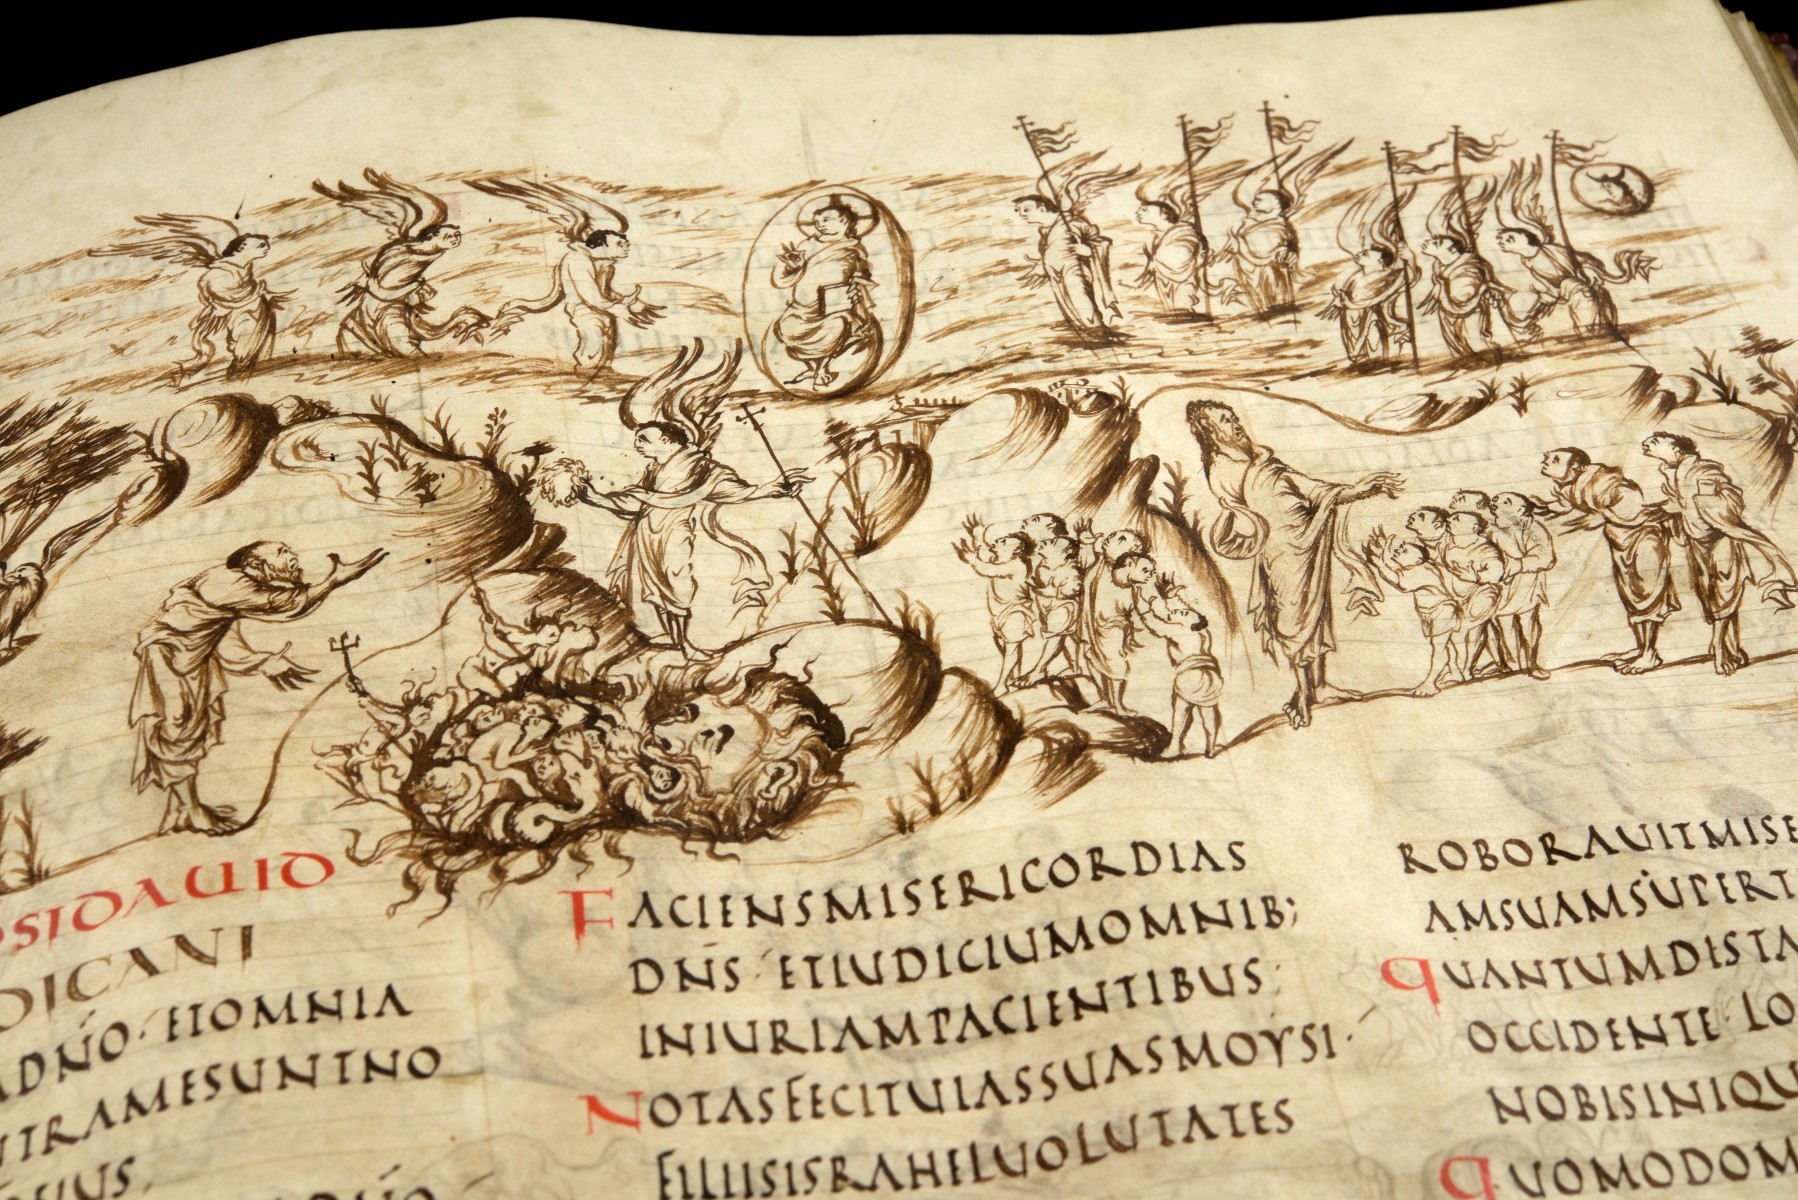 PSIDAUID
DICANI
ADNO· ETOMNIA
NTRAMESUNTNO
FACIENSMISERICORDIAS
DNS· ETIUDICIUMOMNIB;
INIURIAMPACIENTIBUS·
NOTASFECITUIASSUASMOYSI·
FILIISISRAHELUOLUTATES
ROBORAUITMISE
AMSUAMSUPERT
QUANTUMDISTA
OCCIDENTE· LO
NOBISINIQU
QUOMODOM